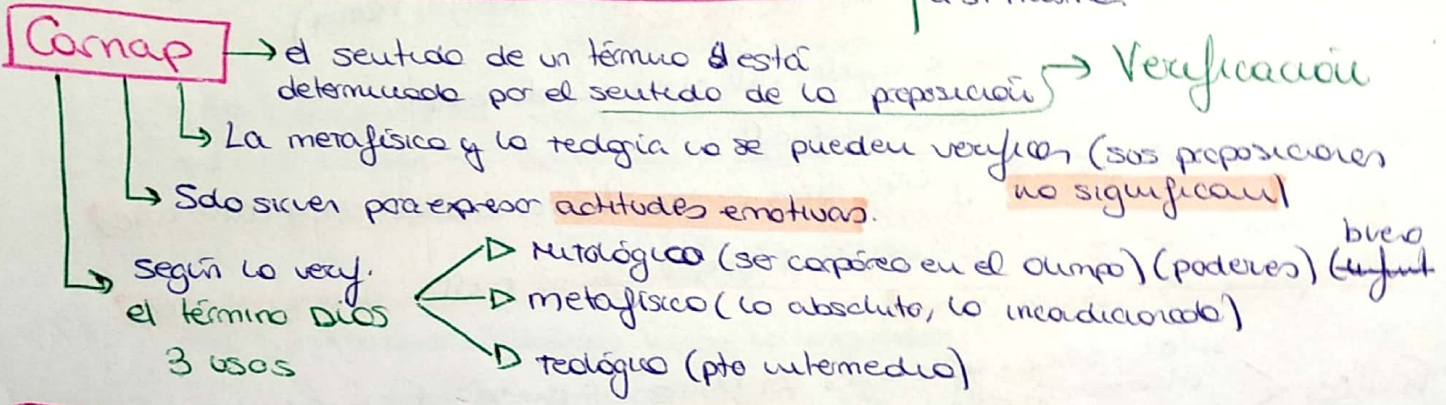 Carnap
el sentido de un término está
determinado por el sentido de la proposición
Verificación
La metafísica y la teología no se pueden verificar (sus proposiciones
no significan)
Solo sirven para expresar actitudes emotivas.
bueno
según la verif.
Mitológico (ser corpóreo en el olimpo) (poderes)
el término DIOS
metafísico (lo absoluto, lo incondicionado)
3 usos
teológico (pto intermedio)